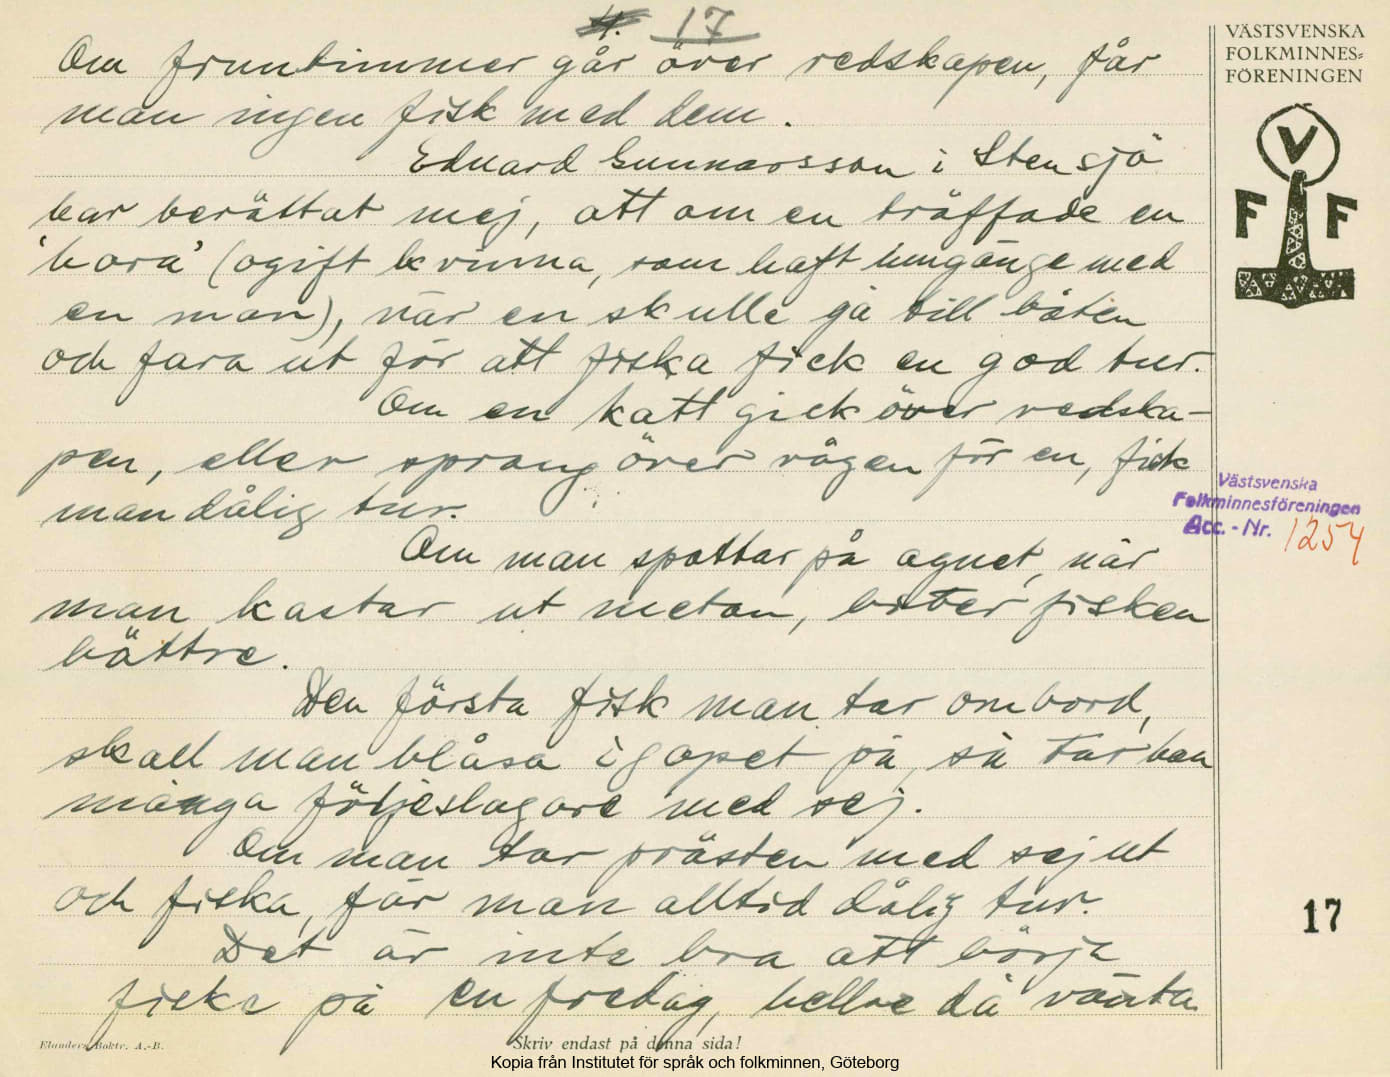 17
Om fruntimmer går över redskapen, får
man ingen fisk med dem.
Eduard Gunnarsson i Stensjö
har berättat mej, att om en träffade en
'hora' (ogift kvinna, som haft umgänge med
en man), när en skulle gå till båten
och fara ut för att fiska fick en god tur.
Om en katt gick över redska-
pen, eller sprang över vägen för en, fick
man dålig tur.
Om man spottar på agnet, när
man kastar ut metan, biter fisken
bättre.
Den första fisk man tar ombord,
skall man blåsa i gapet på, så tar han
många följeslagare med sej.
Om man tar prästen med sej ut
och fiska, får man alltid dålig tur.
Det är inte bra att börja
fiska på en fredag, hellre då vänta
Elanders Boktr. A.-B.
Skriv endast på denna sida!
Kopia från Institutet för språk och folkminnen, Göteborg
VÄSTSVENSKA
FOLKMINNES=
FÖRENINGEN
V
F F
Västsvenska
Folkminnesföreningen
Acc. - Nr. 1254
17